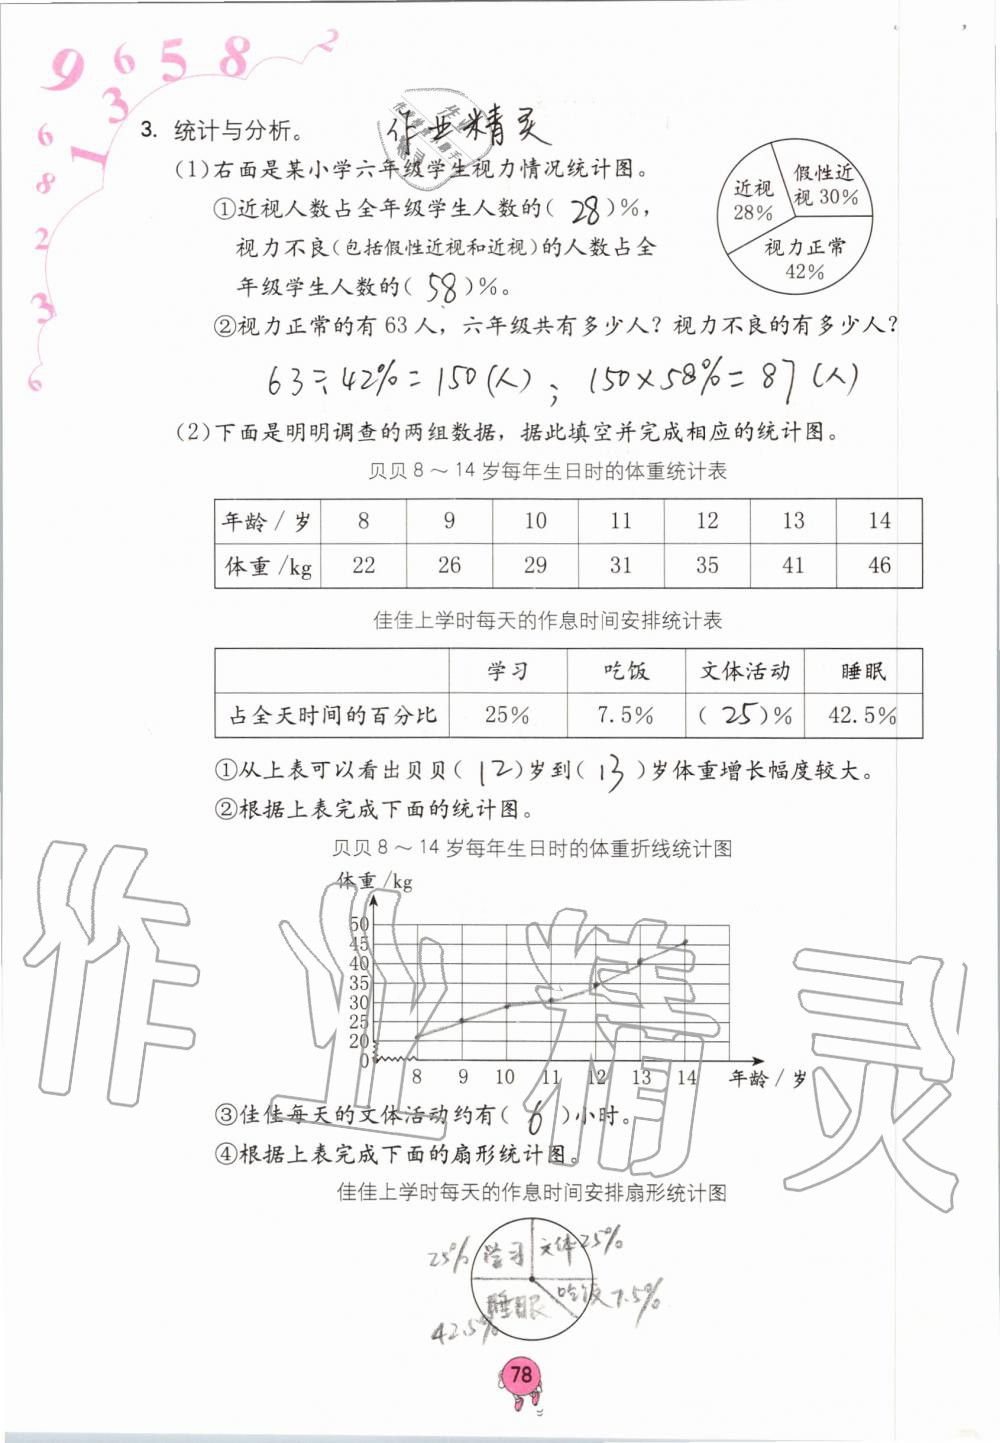 9 6 5 8 2
3
1
6
8
2
3
6
作业精灵
3. 统计与分析。
(1)右面是某小学六年级学生视力情况统计图。
①近视人数占全年级学生人数的( 28 )%,
视力不良(包括假性近视和近视)的人数占全
年级学生人数的( 58 )%。
近视
28%
假性近
视 30%
视力正常
42%
②视力正常的有 63 人，六年级共有多少人？视力不良的有多少人？
63÷42%=150(人)； 150×58%=87(人)
(2)下面是明明调查的两组数据，据此填空并完成相应的统计图。
贝贝 8～14 岁每年生日时的体重统计表
年龄/岁 8 9 10 11 12 13 14
体重/kg 22 26 29 31 35 41 46
佳佳上学时每天的作息时间安排统计表
学习 吃饭 文体活动 睡眠
占全天时间的百分比 25% 7.5% ( 25 )% 42.5%
①从上表可以看出贝贝( 12 )岁到( 13 )岁体重增长幅度较大。
②根据上表完成下面的统计图。
贝贝 8～14 岁每年生日时的体重折线统计图
体重/kg
50
45
40
35
30
25
20
0
8 9 10 11 12 13 14 年龄/岁
③佳佳每天的文体活动约有( 6 )小时。
④根据上表完成下面的扇形统计图。
佳佳上学时每天的作息时间安排扇形统计图
25% 学习 文体 25%
睡眠 吃饭 7.5%
42.5%
78
作业精灵